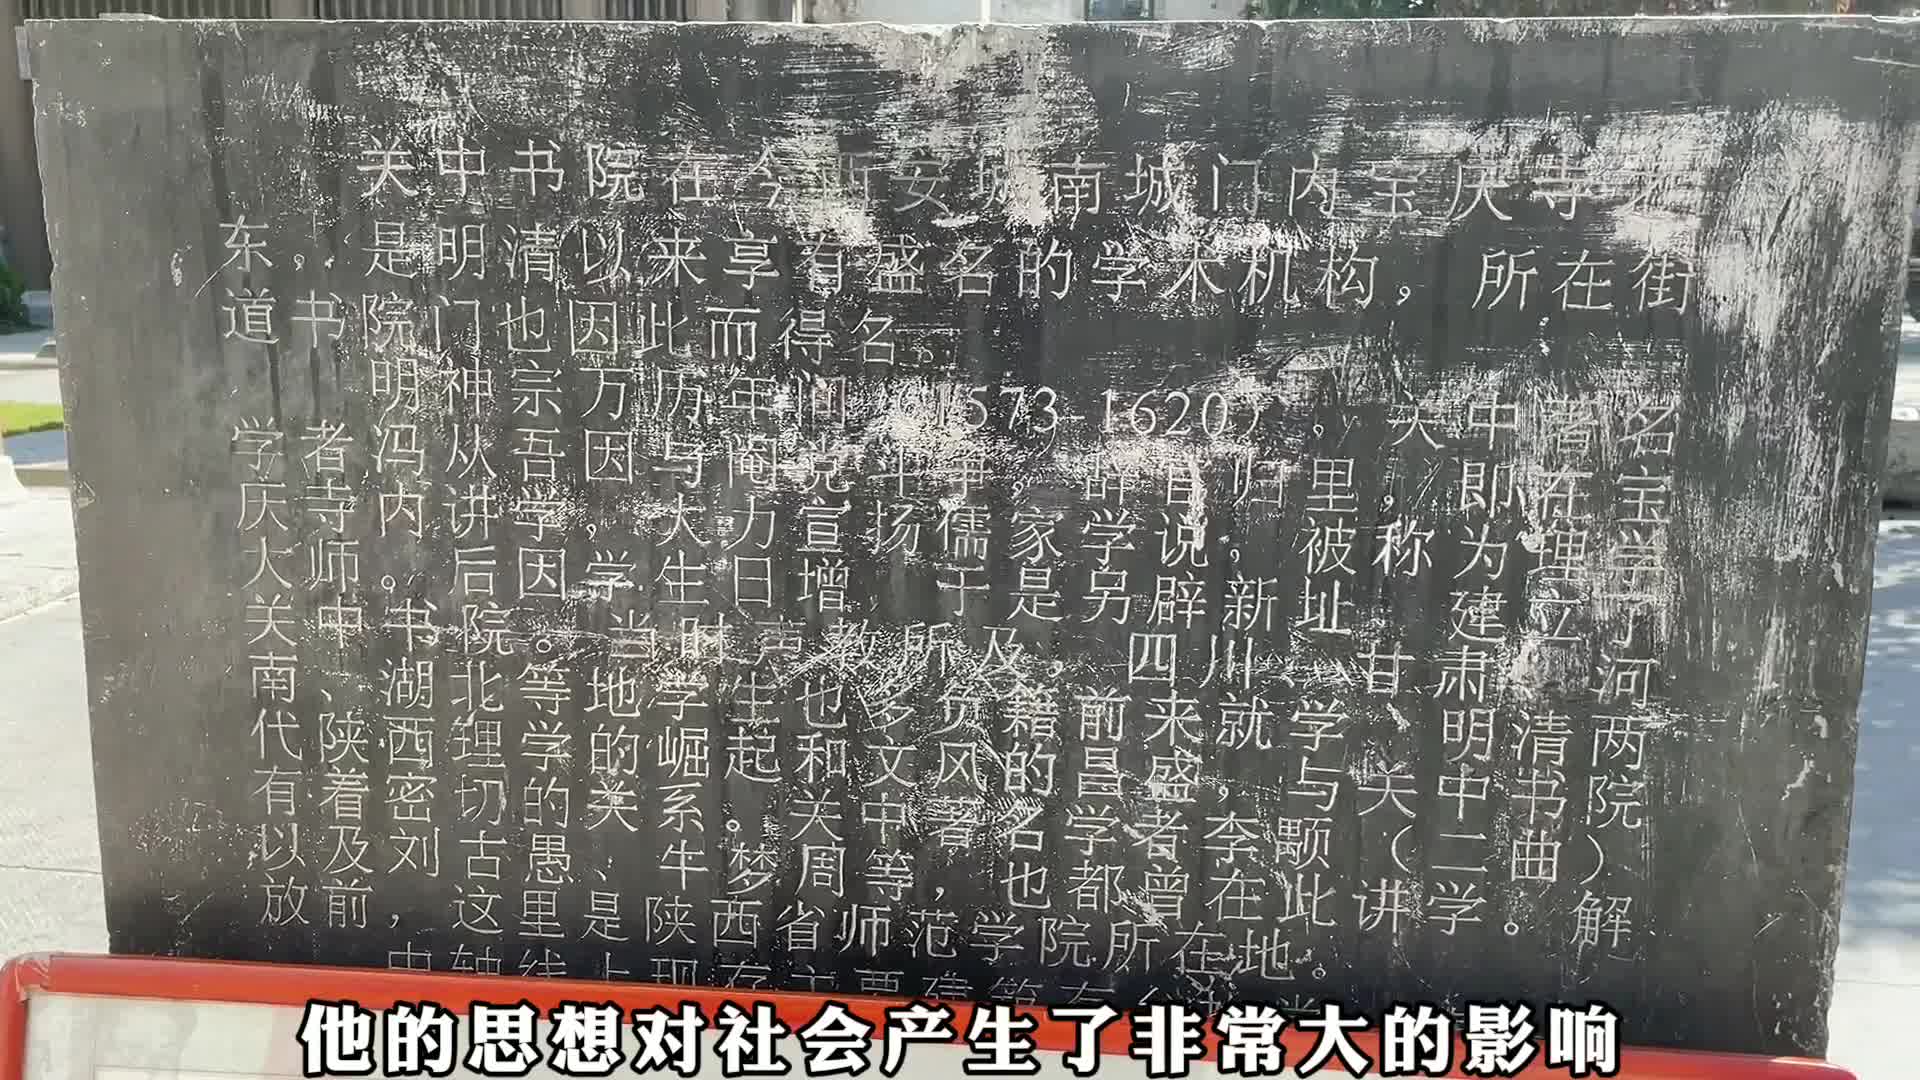 关中书院在今西安城南城门内宝庆寺
东，是明清以来享有盛名的学术机构，所在街
道书院门也因此而得名。
明神宗万历年间（1573-1620），关中著名
学者冯从吾因与阉党斗争，辞官归里，即在宝
庆寺内讲学，大力宣扬儒家学说，被称为理学
大师。后因学生日增，于是另辟新址建立了
关中书院。当时声教所及，四川、甘肃、河
南、湖北等地学生也多负籍前来就学，明清两
代陕西理学的崛起和文风的昌盛，与关中书院
有着密切的关系。关中著名学者李颙（二曲）
以及刘古愚、牛梦周等，也都曾在此讲学。解
放前，这里是陕西省师范学院所在地。
中轴线上现存主要建筑有
他的思想对社会产生了非常大的影响